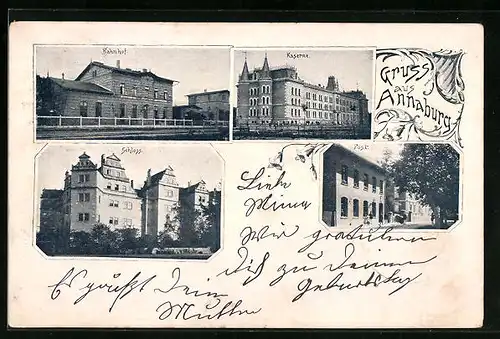 Bahnhof.
Kaserne.
Gruss
aus
Annaburg
Schloss.
Liebe
Minna
Wir gratulieren
Dich zu Deinem
Geburtstag
Es grüßt Deine
Mutter